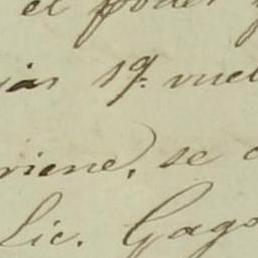 el poder
19. vuel
viene, se
Lic. Gago